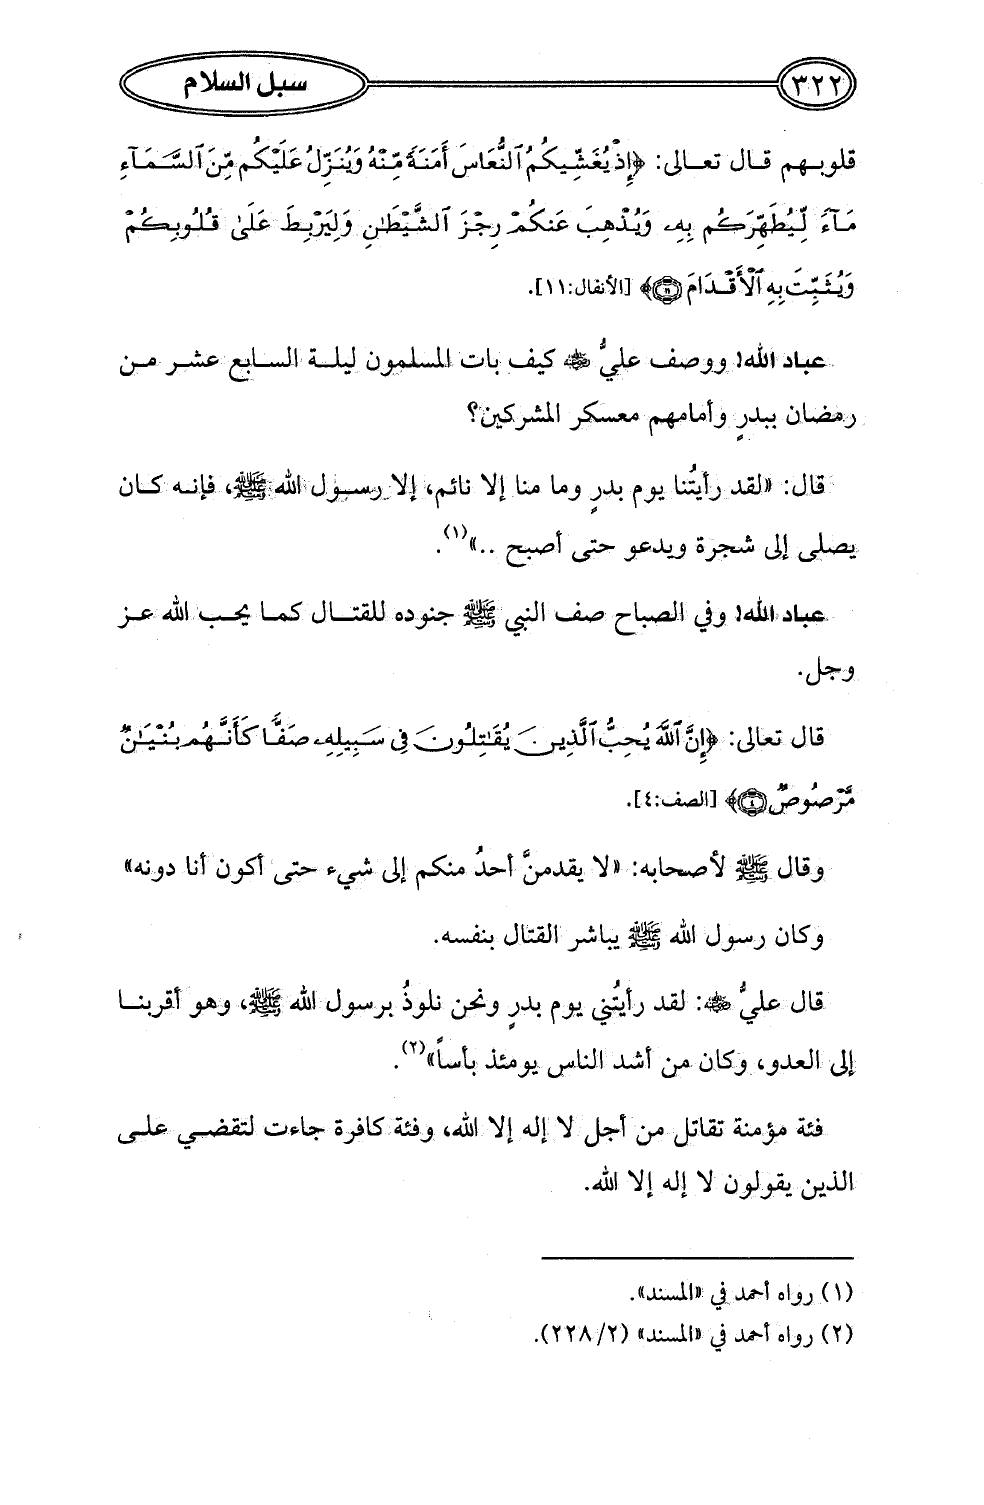 ٣٢٢ سبل السلام
قلوبهم قال تعالى: ﴿إِذْ يُغَشِّيكُمُ ٱلنُّعَاسَ أَمَنَةً مِّنْهُ وَيُنَزِّلُ عَلَيْكُم مِّنَ ٱلسَّمَآءِ
مَآءً لِّيُطَهِّرَكُم بِهِۦ وَيُذْهِبَ عَنكُمْ رِجْزَ ٱلشَّيْطَٰنِ وَلِيَرْبِطَ عَلَىٰ قُلُوبِكُمْ
وَيُثَبِّتَ بِهِ ٱلْأَقْدَامَ ۝١١﴾ [الأنفال:١١].
عباد الله! ووصف عليُّ ﵁ كيف بات المسلمون ليلة السابع عشر من
رمضان ببدرٍ وأمامهم معسكر المشركين؟
قال: «لقد رأيتُنا يوم بدرٍ وما منا إلا نائم، إلا رسول الله ﷺ، فإنه كان
يصلى إلى شجرة ويدعو حتى أصبح ..»(١).
عباد الله! وفي الصباح صف النبي ﷺ جنوده للقتال كما يحب الله عز
وجل.
قال تعالى: ﴿إِنَّ ٱللَّهَ يُحِبُّ ٱلَّذِينَ يُقَٰتِلُونَ فِى سَبِيلِهِۦ صَفًّا كَأَنَّهُم بُنْيَٰنٌ
مَّرْصُوصٌ ۝٤﴾ [الصف:٤].
وقال ﷺ لأصحابه: «لا يقدمنَّ أحدُ منكم إلى شيء حتى أكون أنا دونه»
وكان رسول الله ﷺ يباشر القتال بنفسه.
قال عليُّ ﵁: لقد رأيتُني يوم بدرٍ ونحن نلوذُ برسول الله ﷺ، وهو أقربنا
إلى العدو، وكان من أشد الناس يومئذ بأساً»(٢).
فئة مؤمنة تقاتل من أجل لا إله إلا الله، وفئة كافرة جاءت لتقضي على
الذين يقولون لا إله إلا الله.
(١) رواه أحمد في «المسند».
(٢) رواه أحمد في «المسند» (٢/ ٢٢٨).